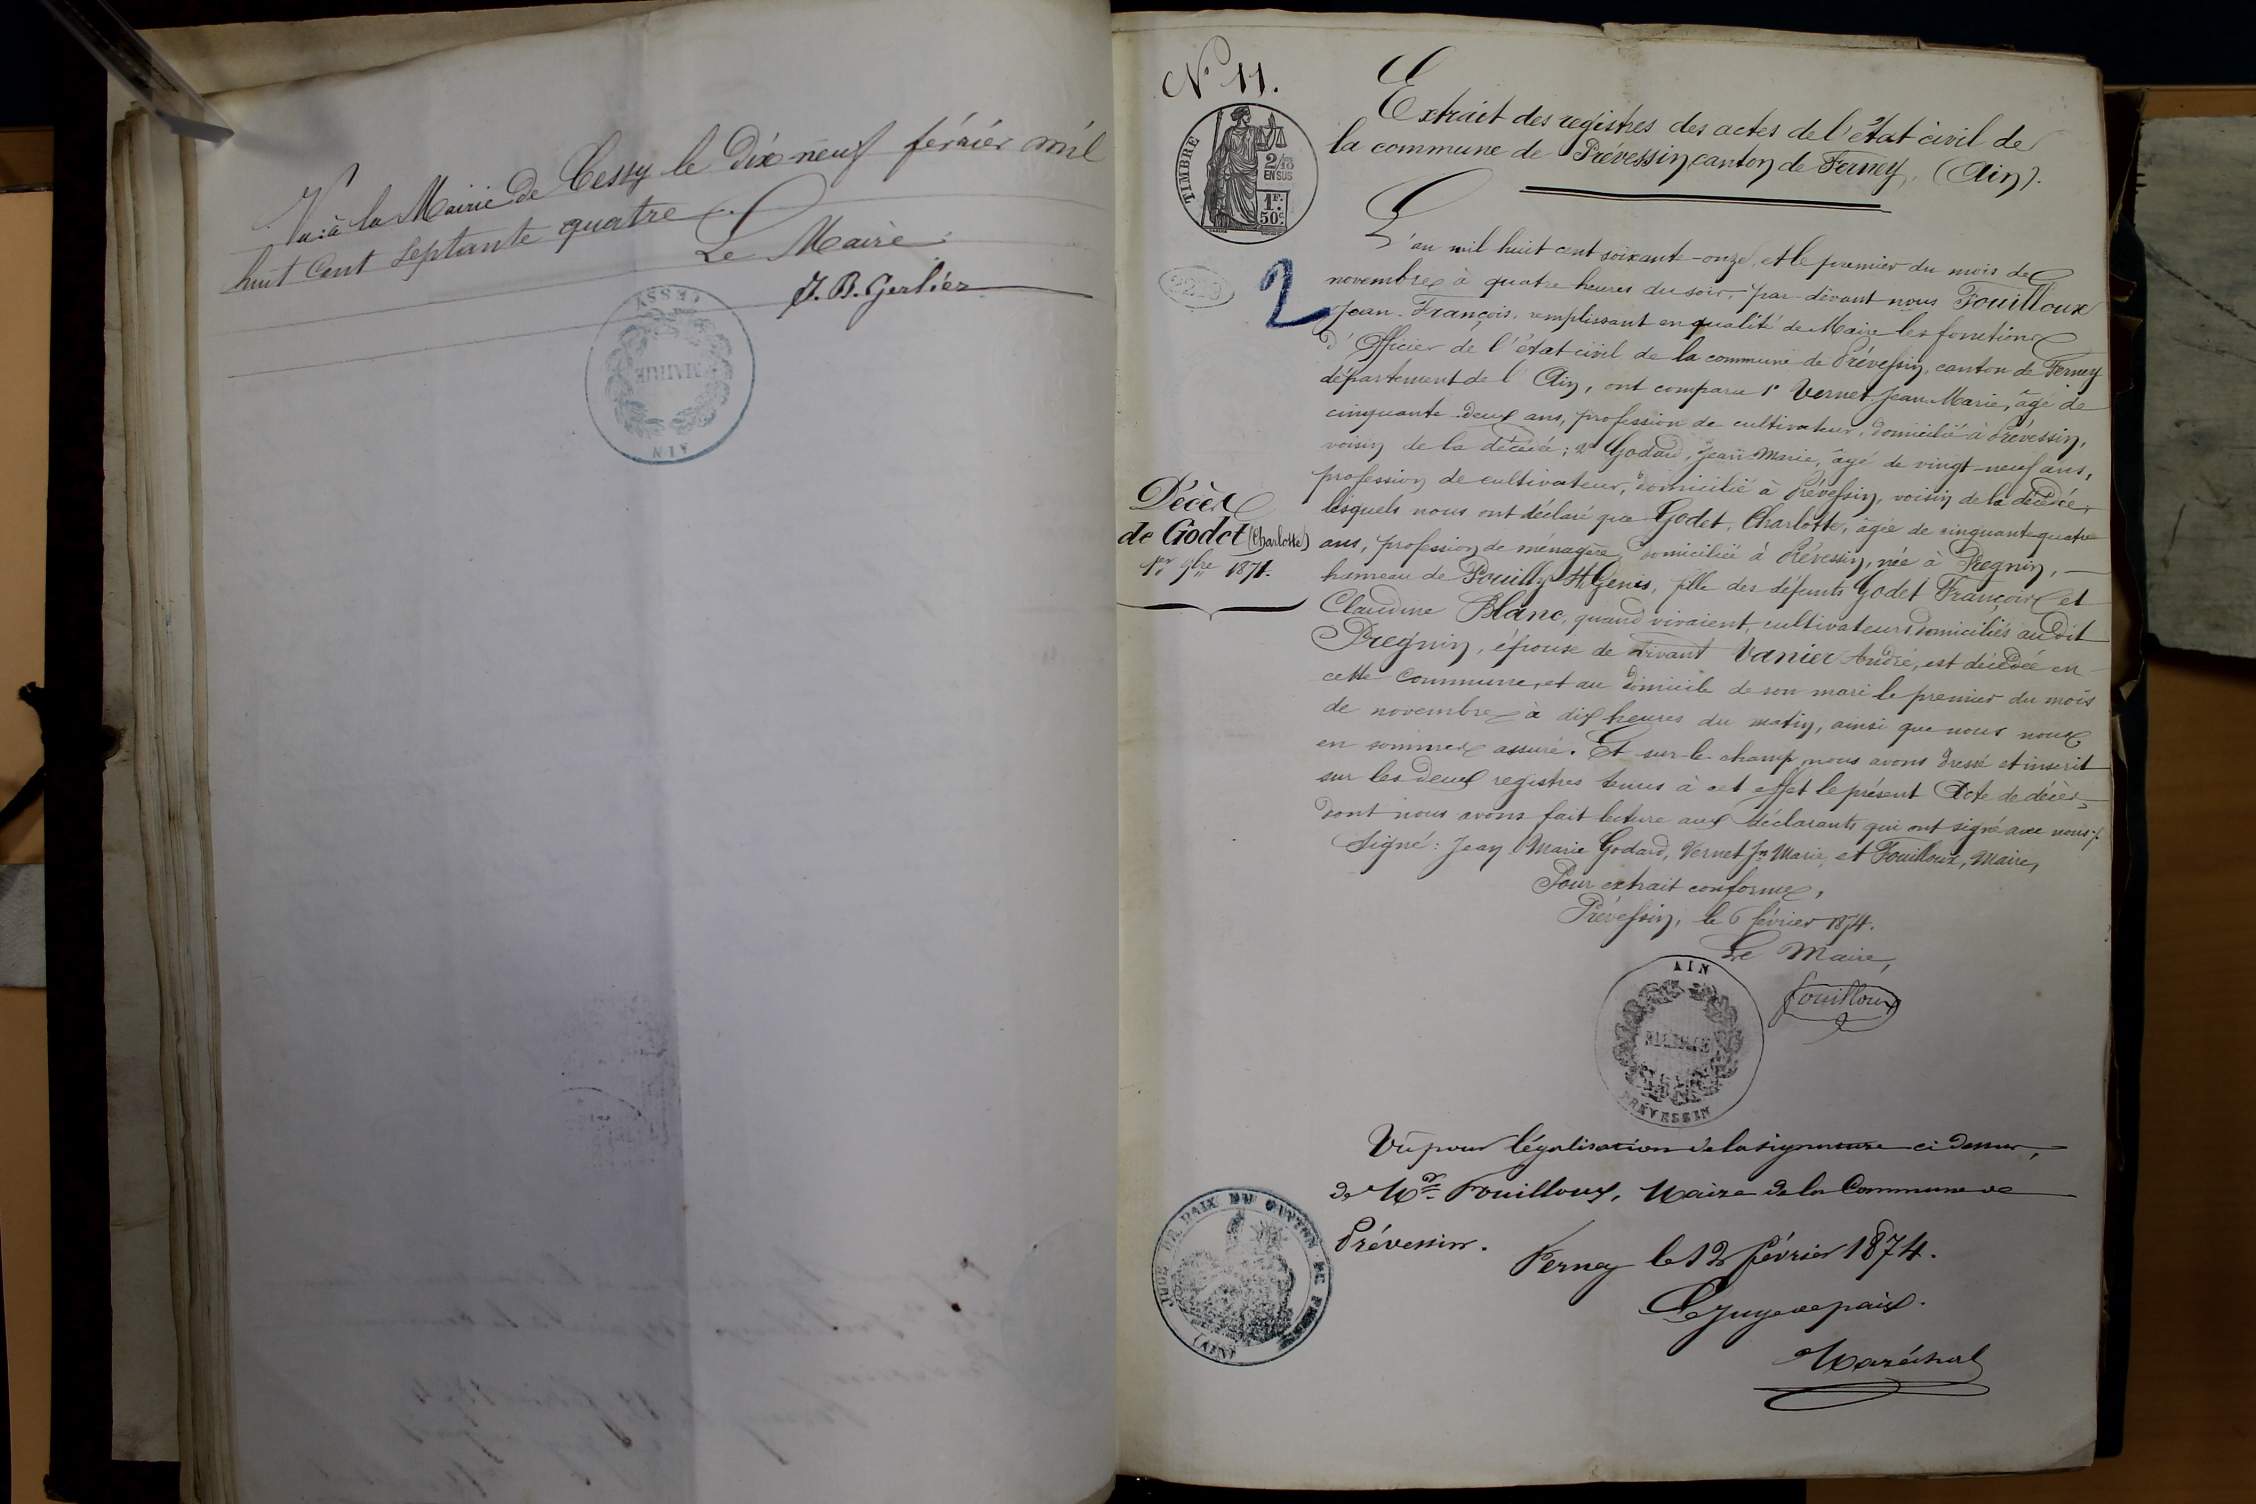 Vu à la Mairie de Cessy le dix neuf février mil
huit cent septante quatre.
Le Maire:
J. B. Gerlier
CESSY
MAIRIE
AIN
N° 11.
TIMBRE
2/10
EN SUS
1F.
50c
2
Extrait des registres des actes de l'état civil de
la commune de Prévessin, canton de Ferney, (Ain).
L'an mil huit cent soixante-onze, et le premier du mois de
novembre à quatre heures du soir, par devant nous Fouilloux
Jean-François, remplissant en qualité de Maire les fonctions
d'Officier de l'état civil de la commune de Prévessin, canton de Ferney
département de l'Ain, ont comparu 1° Vernet Jean-Marie, âgé de
cinquante-deux ans, profession de cultivateur, domicilié à Prévessin,
voisin de la décédée; 2° Godard, Jean-Marie, âgé de vingt-neuf ans,
profession de cultivateur, domicilié à Prévessin, voisin de la décédée,
lesquels nous ont déclaré que Godet, Charlotte, âgée de cinquante quatre
ans, profession de ménagère, domiciliée à Prévessin, née à Pregnin,
hameau de Pouilly St Genis, fille des défunts Godet François et
Claudine Blanc, quand vivaient, cultivateurs domiciliés au dit
Pregnin, épouse de vivant Vanier André, est décédée en
cette commune, et au domicile de son mari le premier du mois
de novembre à dix heures du matin, ainsi que nous nous
en sommes assuré. Et sur le champ nous avons dressé et inscrit
sur les deux registres tenus à cet effet le présent Acte de décès,
dont nous avons fait lecture aux déclarants qui ont signé avec nous.
Signé: Jean Marie Godard, Vernet Jn Marie, et Fouilloux, Maire,
Décès
de Godet (Charlotte)
1er 9bre 1871.
Pour extrait conforme,
Prévessin, le 6 février 1874.
Le Maire,
Fouilloux
AIN
MAIRIE
PRÉVESSIN
Vu pour légalisation de la signature ci dessus,
de Mr. Fouilloux, Maire de la Commune de
Prévessin.
Ferney le 12 février 1874.
Le Juge de paix.
Maréchal
JUGE DE PAIX DU CANTON DE FERNEY
(AIN)